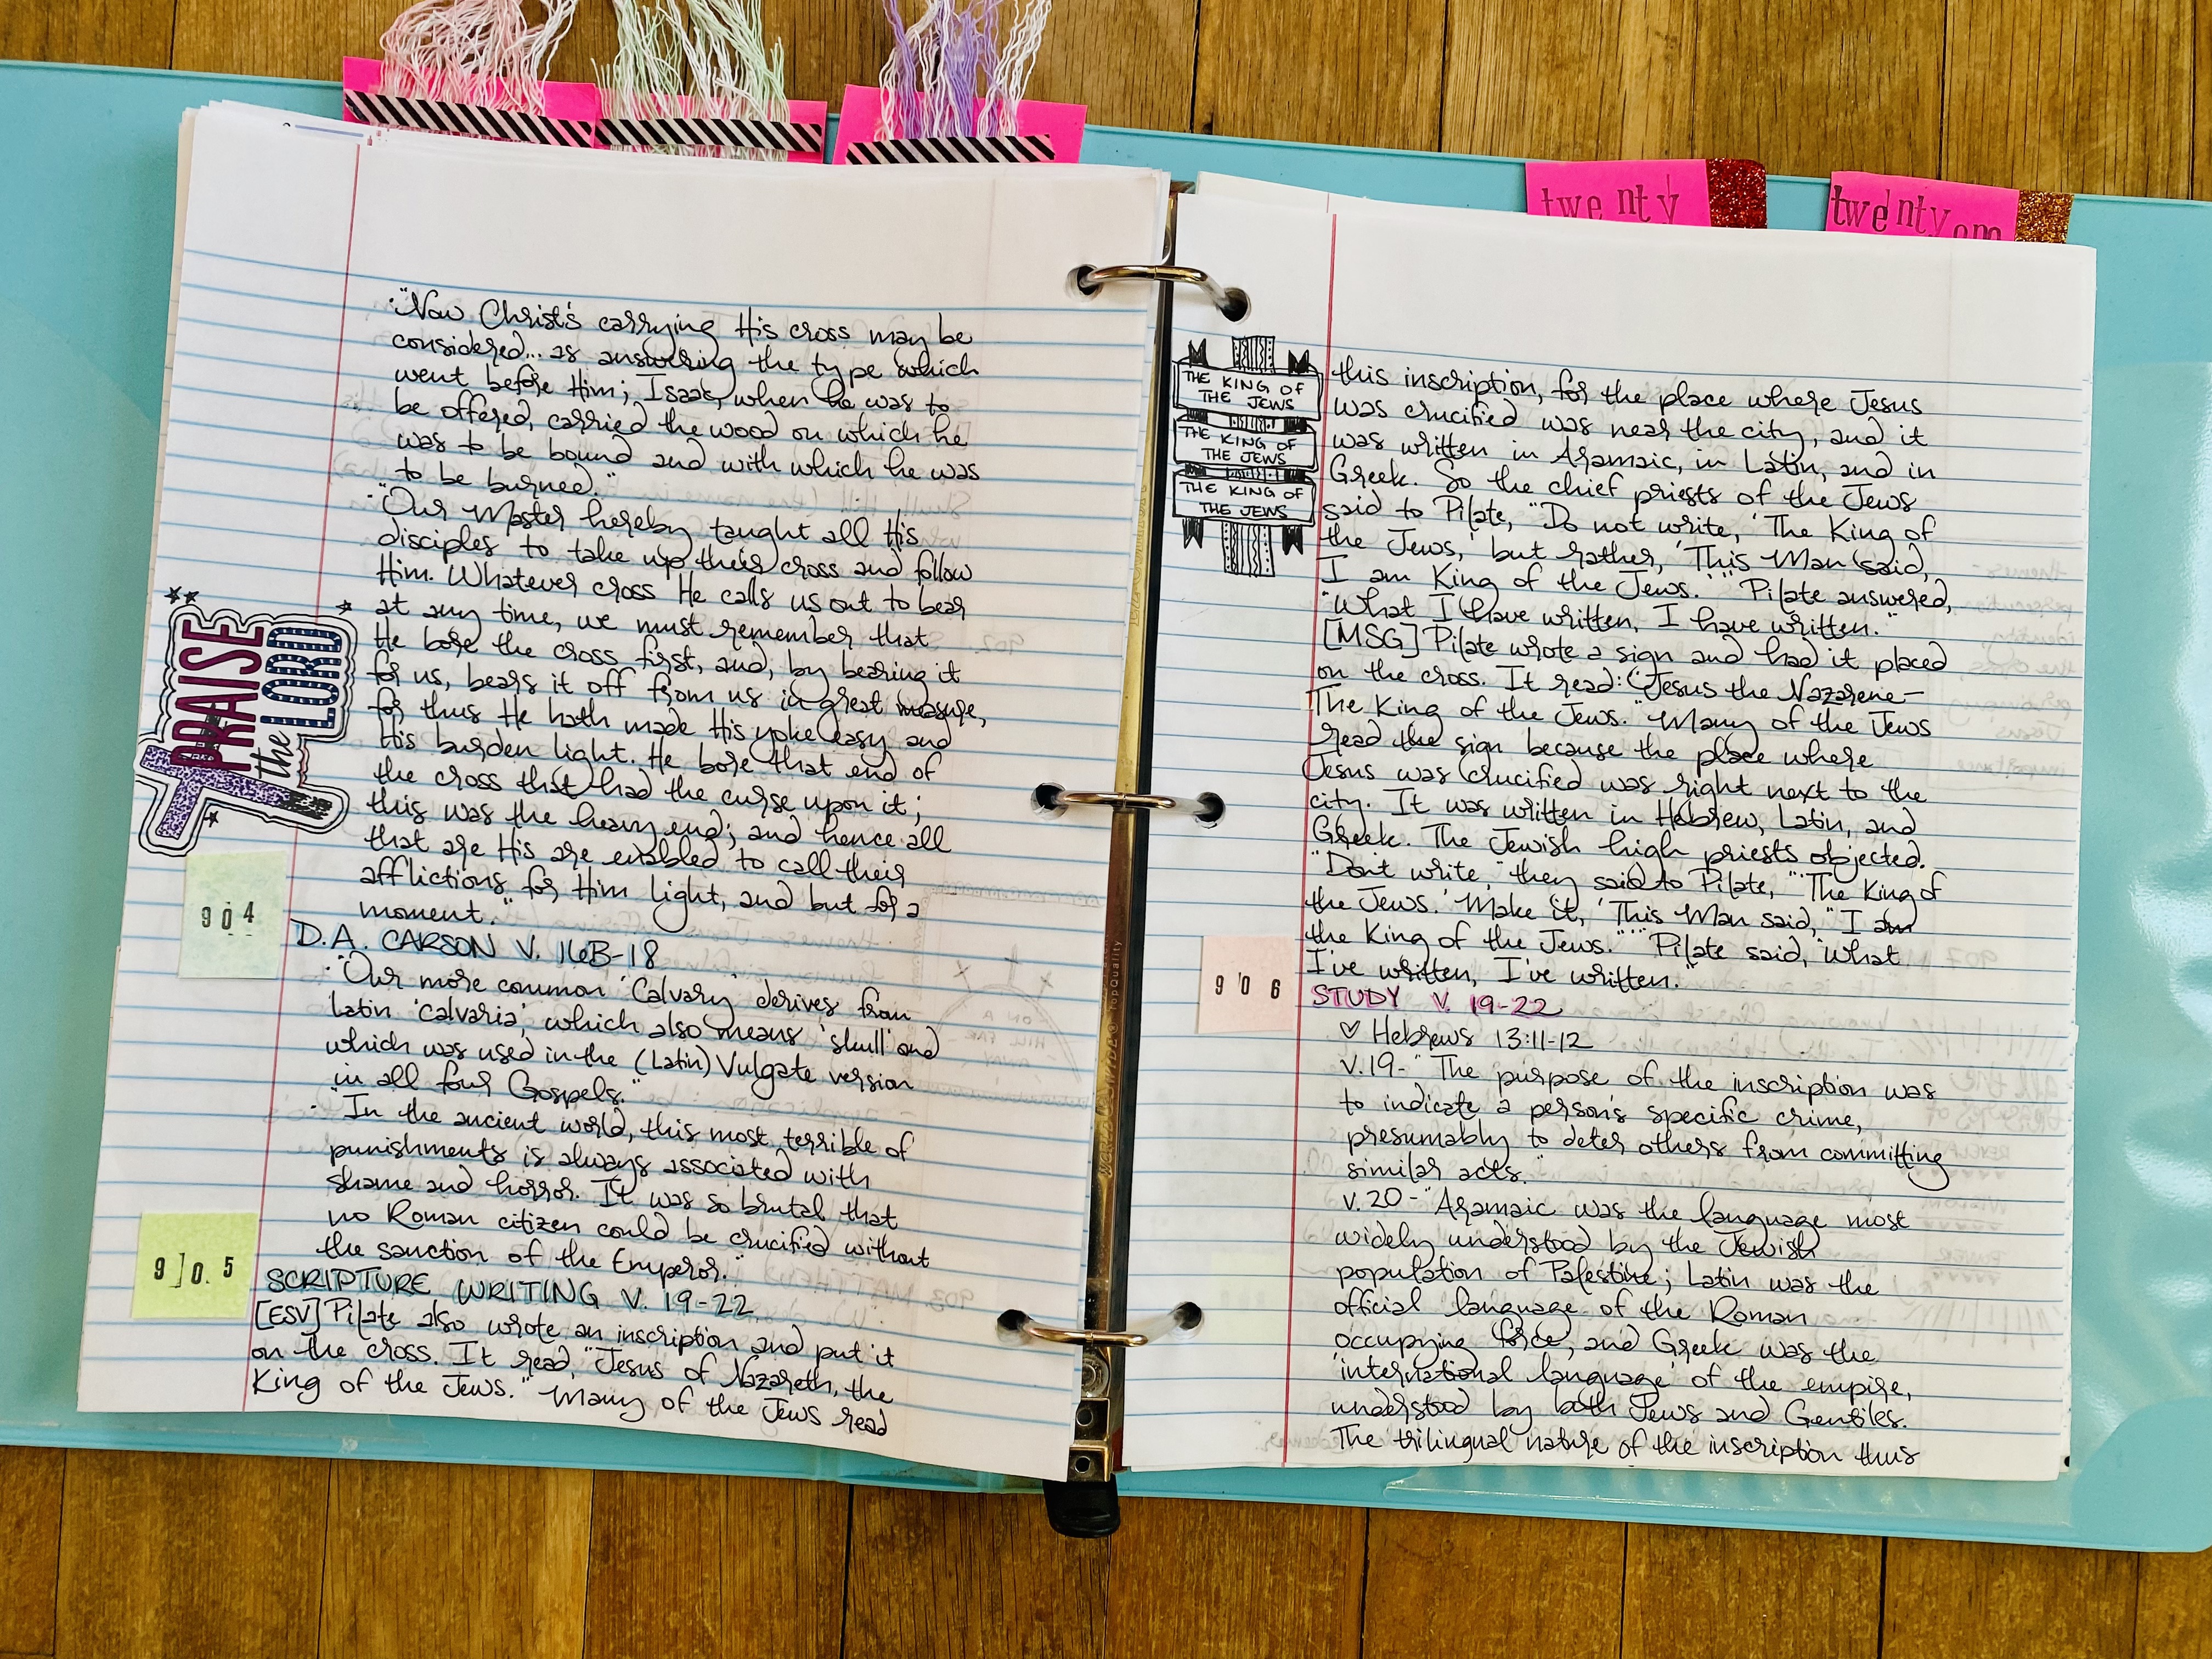 twenty
twenty one
"Now Christ's carrying His cross may be
considered... as answering the type which
went before Him; Isaac, when he was to
be offered, carried the wood on which he
was to be bound and with which he was
to be burned."
"Our Master hereby taught all His
disciples to take up their cross and follow
Him. Whatever cross He calls us out to bear
at any time, we must remember that
He bore the cross first, and, by bearing it
for us, bears it off from us in great measure,
for thus He hath made His yoke easy and
His burden light. He bore that end of
the cross that had the curse upon it;
this was the heavy end; and hence all
that are His are enabled to call their
afflictions for Him light, and but for a
moment."
PRAISE
the LORD
904
D.A. CARSON V. 16B-18
"Our more common 'Calvary' derives from
Latin 'calvaria', which also means 'skull' and
which was used in the (Latin) Vulgate version
in all four Gospels."
"In the ancient world, this most terrible of
punishments is always associated with
shame and horror. It was so brutal that
no Roman citizen could be crucified without
the sanction of the Emperor."
905
SCRIPTURE WRITING V. 19-22
[ESV] Pilate also wrote an inscription and put it
on the cross. It read, "Jesus of Nazareth, the
King of the Jews." Many of the Jews read
THE KING OF
THE JEWS
THE KING OF
THE JEWS
THE KING OF
THE JEWS
this inscription, for the place where Jesus
was crucified was near the city, and it
was written in Aramaic, in Latin, and in
Greek. So the chief priests of the Jews
said to Pilate, "Do not write, 'The King of
the Jews,' but rather, 'This Man said,
I am King of the Jews.'" Pilate answered,
"What I have written, I have written."
[MSG] Pilate wrote a sign and had it placed
on the cross. It read: "Jesus the Nazarene-
The King of the Jews." Many of the Jews
read the sign because the place where
Jesus was crucified was right next to the
city. It was written in Hebrew, Latin, and
Greek. The Jewish high priests objected.
"Don't write," they said to Pilate, "'The King of
the Jews.' Make it, 'This Man said, "I am
the King of the Jews."'" Pilate said, "What
I've written, I've written."
906
STUDY V. 19-22
♡ Hebrews 13:11-12
v.19- "The purpose of the inscription was
to indicate a person's specific crime,
presumably to deter others from committing
similar acts."
v.20- "Aramaic was the language most
widely understood by the Jewish
population of Palestine; Latin was the
official language of the Roman
occupying force, and Greek was the
'international language' of the empire,
understood by both Jews and Gentiles.
The trilingual nature of the inscription thus
TopQuality